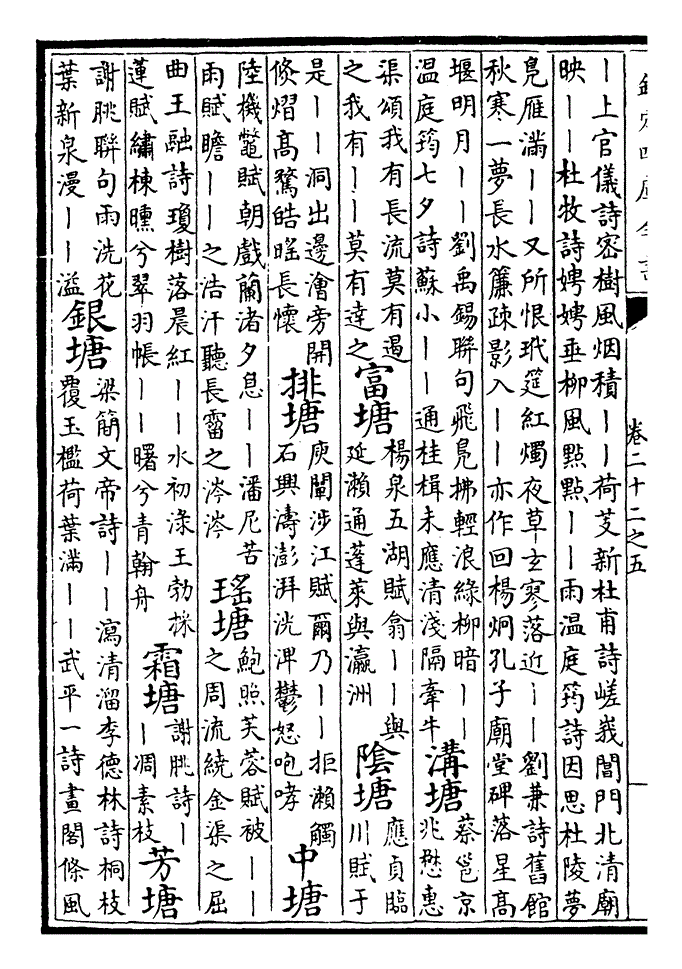 欽定四庫全書
卷二十二之五
｜上官儀詩密樹風烟積｜｜荷芰新杜甫詩嵯峩閶門北清廟
映｜｜杜牧詩娉娉垂柳風點點｜｜雨温庭筠詩因思杜陵夢
鳬雁滿｜｜又所恨玳筵紅燭夜草玄寥落近｜｜劉兼詩舊館
秋寒一夢長水簾疎影入｜｜亦作回楊炯孔子廟堂碑落星髙
堰明月｜｜劉禹錫聯句飛鳬拂輕浪綠柳暗｜｜
温庭筠七夕詩蘇小｜｜通桂楫未應清淺隔牽牛
溝塘
蔡邕京
兆樊惠
渠頌我有長流莫有遏
之我有｜｜莫有達之
富塘
楊泉五湖賦翕｜｜與
延瀬通蓬萊與瀛洲
陰塘
應貞臨
川賦于
是｜｜洞出邊澮旁開
倏熠髙鶩皓暚長懷
排塘
庾闡涉江賦爾乃｜｜拒瀬觸
石興濤澎湃洸渒鬱怒咆哮
中塘
陸機鼈賦朝戲蘭渚夕息｜｜潘尼苦
雨賦瞻｜｜之浩汗聽長霤之涔涔
瑤塘
鮑照芙蓉賦被｜｜
之周流繞金渠之屈
曲王融詩瓊樹落晨紅｜｜水初渌王勃採
蓮賦繡棟曛兮翠羽帳｜｜曙兮青翰舟
霜塘
謝朓詩｜
｜凋素枝
芳塘
謝朓聨句雨洗花
葉新泉漫｜｜溢
銀塘
梁簡文帝詩｜｜瀉清溜李德林詩桐枝
覆玉檻荷葉滿｜｜武平一詩畫閣條風